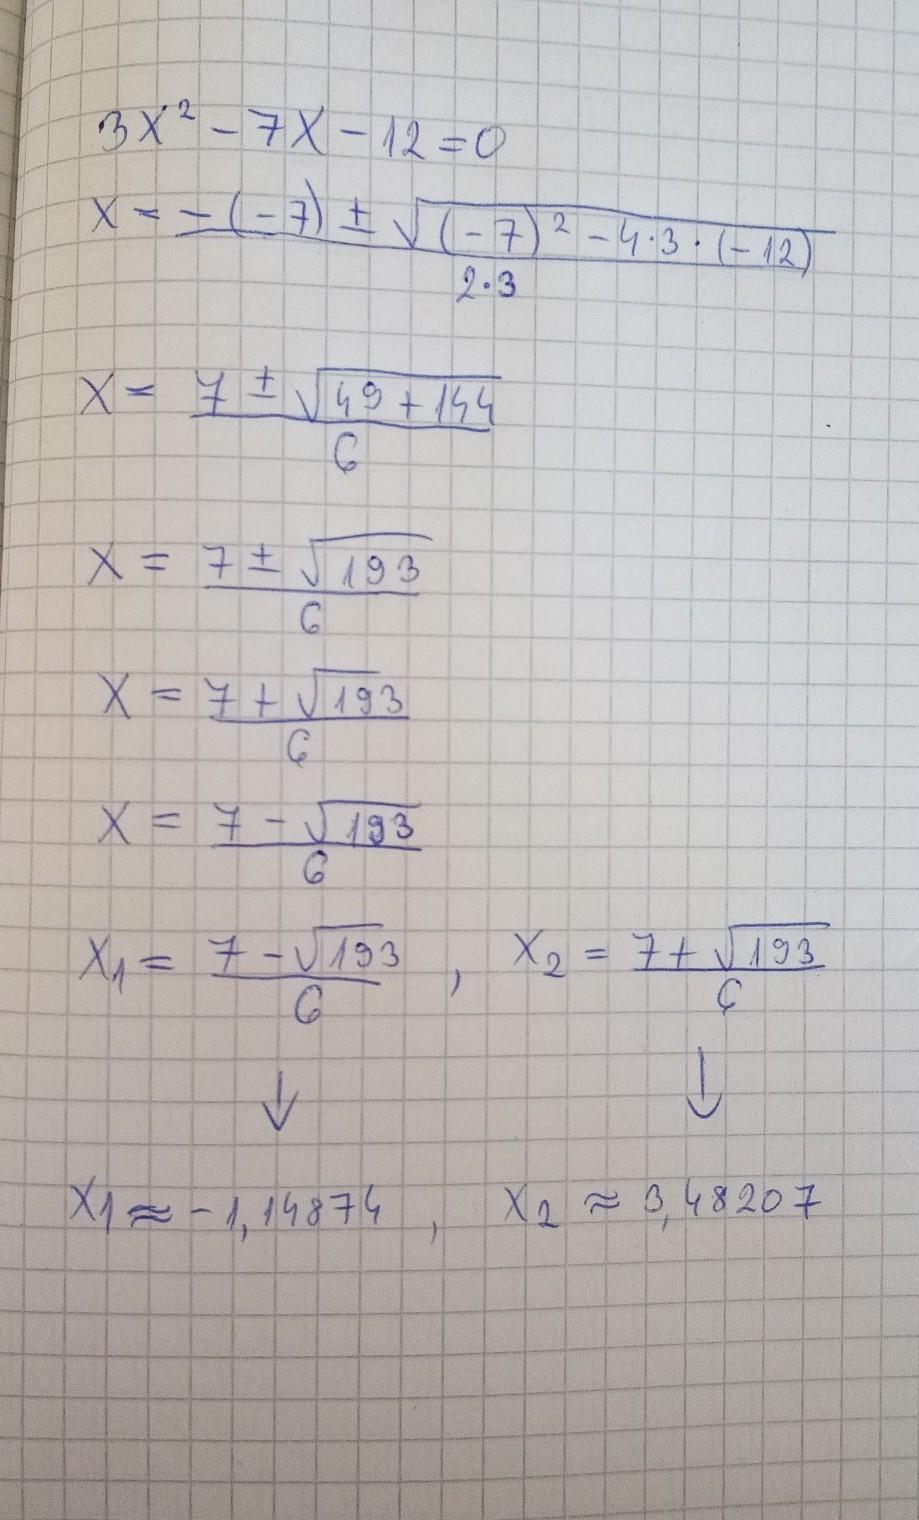 3X² - 7X - 12 = 0
X = (-(-7) ± √((-7)² - 4·3·(-12)))/(2·3)
X = (7 ± √(49 + 144))/6
X = (7 ± √193)/6
X = (7 + √193)/6
X = (7 - √193)/6
X₁ = (7 - √193)/6 , X₂ = (7 + √193)/6
↓ ↓
X₁ ≈ -1,14874 , X₂ ≈ 3,48207